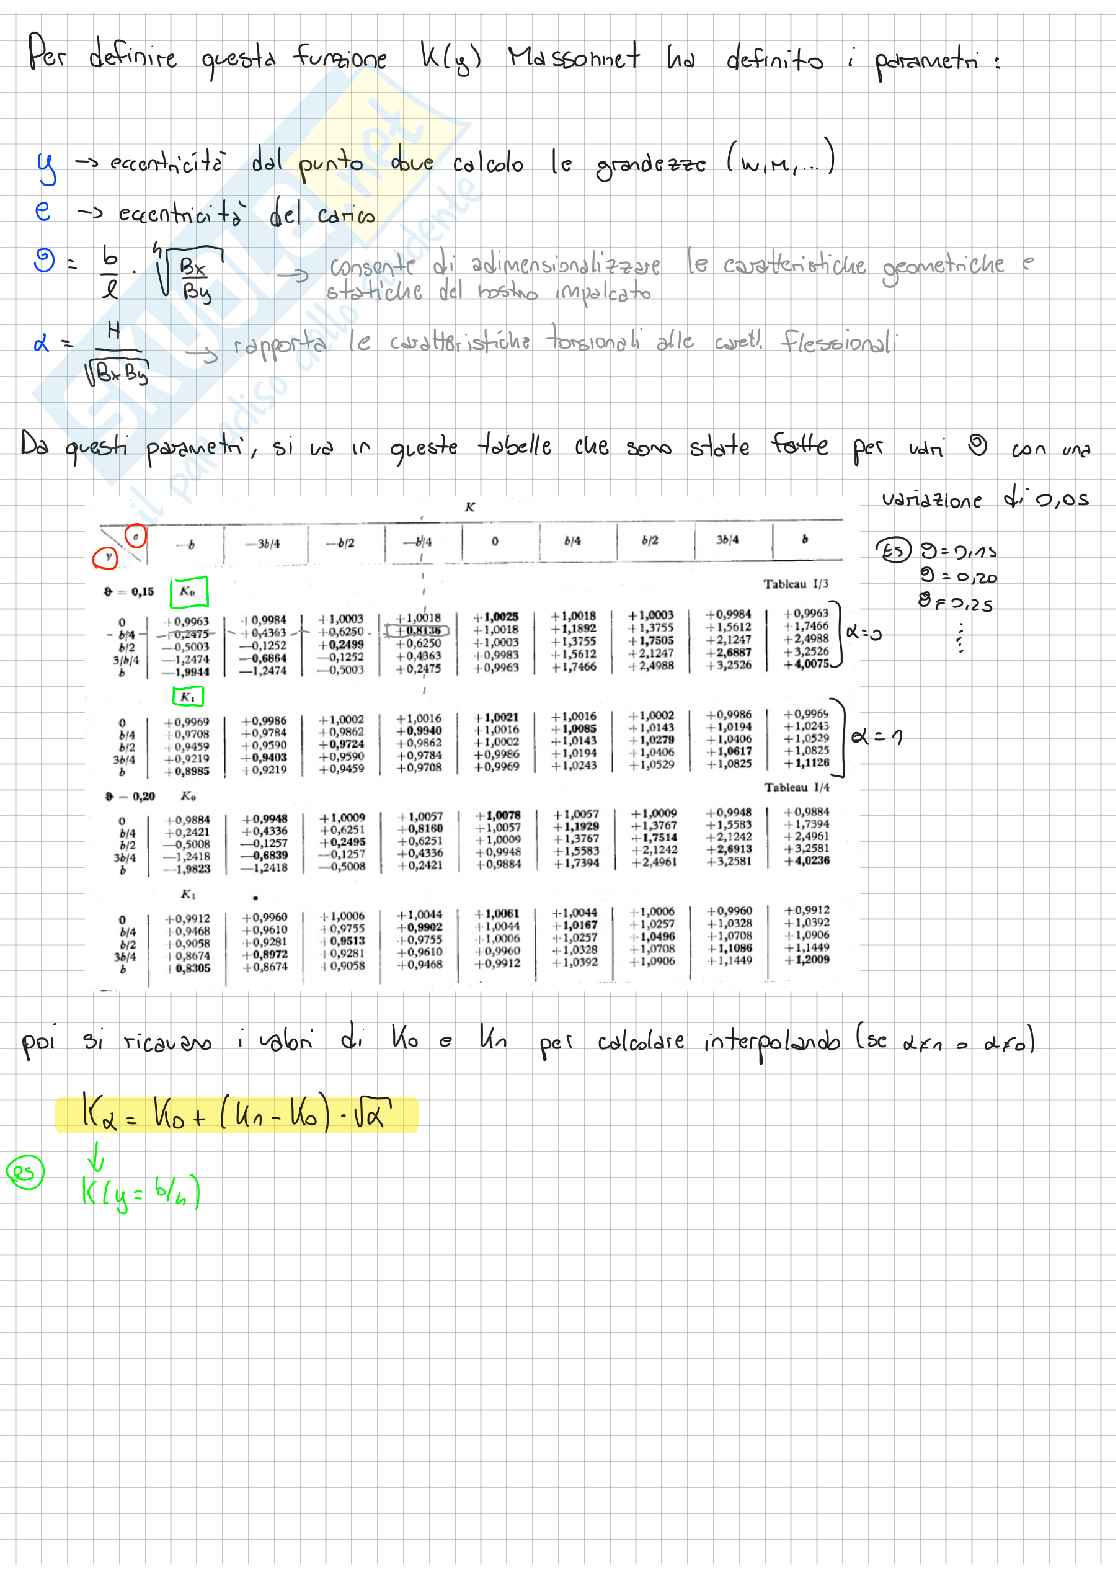 Per definire questa funzione K(y) Massonnet ha definito i parametri :
y → eccentricità dal punto dove calcolo le grandezze (w, M, ...)
e → eccentricità del carico
ϑ = b/l · ⁴√(Bx/By) → consente di adimensionalizzare le caratteristiche geometriche e
statiche del nostro impalcato
α = H/√(Bx By) → rapporta le caratteristiche torsionali alle caratt. flessionali
SKUOLA.net
il paradiso dello studente
Da questi parametri, si va in queste tabelle che sono state fatte per vari ϑ con una
variazione di 0,05
ES ϑ = 0,15
ϑ = 0,20
ϑ = 0,25
K
y e —b —3b/4 —b/2 —b/4 0 b/4 b/2 3b/4 b
ϑ — 0,15 K₀ Tableau I/3
0 +0,9963 +0,9984 +1,0003 +1,0018 +1,0025 +1,0018 +1,0003 +0,9984 +0,9963
b/4 +0,2475 +0,4363 +0,6250 +0,8136 +1,0018 +1,1892 +1,3755 +1,5612 +1,7466
b/2 —0,5003 —0,1252 +0,2499 +0,6250 +1,0003 +1,3755 +1,7505 +2,1247 +2,4988
3/b/4 —1,2474 —0,6864 —0,1252 +0,4363 +0,9983 +1,5612 +2,1247 +2,6887 +3,2526
b —1,9944 —1,2474 —0,5003 +0,2475 +0,9963 +1,7466 +2,4988 +3,2526 +4,0075
α = 0
K₁
0 +0,9969 +0,9986 +1,0002 +1,0016 +1,0021 +1,0016 +1,0002 +0,9986 +0,9969
b/4 +0,9708 +0,9784 +0,9862 +0,9940 +1,0016 +1,0085 +1,0143 +1,0194 +1,0243
b/2 +0,9459 +0,9590 +0,9724 +0,9862 +1,0002 +1,0143 +1,0279 +1,0406 +1,0529
3b/4 +0,9219 +0,9403 +0,9590 +0,9784 +0,9986 +1,0194 +1,0406 +1,0617 +1,0825
b +0,8985 +0,9219 +0,9459 +0,9708 +0,9969 +1,0243 +1,0529 +1,0825 +1,1126
α = 1
Tableau I/4
ϑ — 0,20 K₀
0 +0,9884 +0,9948 +1,0009 +1,0057 +1,0078 +1,0057 +1,0009 +0,9948 +0,9884
b/4 +0,2421 +0,4336 +0,6251 +0,8160 +1,0057 +1,1929 +1,3767 +1,5583 +1,7394
b/2 —0,5008 —0,1257 +0,2495 +0,6251 +1,0009 +1,3767 +1,7514 +2,1242 +2,4961
3b/4 —1,2418 —0,6839 —0,1257 +0,4336 +0,9948 +1,5583 +2,1242 +2,6913 +3,2581
b —1,9823 —1,2418 —0,5008 +0,2421 +0,9884 +1,7394 +2,4961 +3,2581 +4,0236
K₁
0 +0,9912 +0,9960 +1,0006 +1,0044 +1,0061 +1,0044 +1,0006 +0,9960 +0,9912
b/4 +0,9468 +0,9610 +0,9755 +0,9902 +1,0044 +1,0167 +1,0257 +1,0328 +1,0392
b/2 +0,9058 +0,9281 +0,9513 +0,9755 +1,0006 +1,0257 +1,0496 +1,0708 +1,0906
3b/4 +0,8674 +0,8972 +0,9281 +0,9610 +0,9960 +1,0328 +1,0708 +1,1086 +1,1449
b +0,8305 +0,8674 +0,9058 +0,9468 +0,9912 +1,0392 +1,0906 +1,1449 +1,2009
poi si ricavano i valori di K₀ e K₁ per calcolare interpolando (se α≠1 o α≠0)
Kα = K₀ + (K₁ - K₀) · √α
es
K(y = b/4)